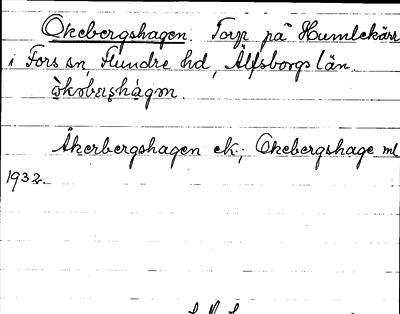 Okebergshagen. Torp på Humlekärr
i Fors sn, Flundre hd, Älfsborgs län.
Åkerbergshagen ek; Okebergshage ml
1932.